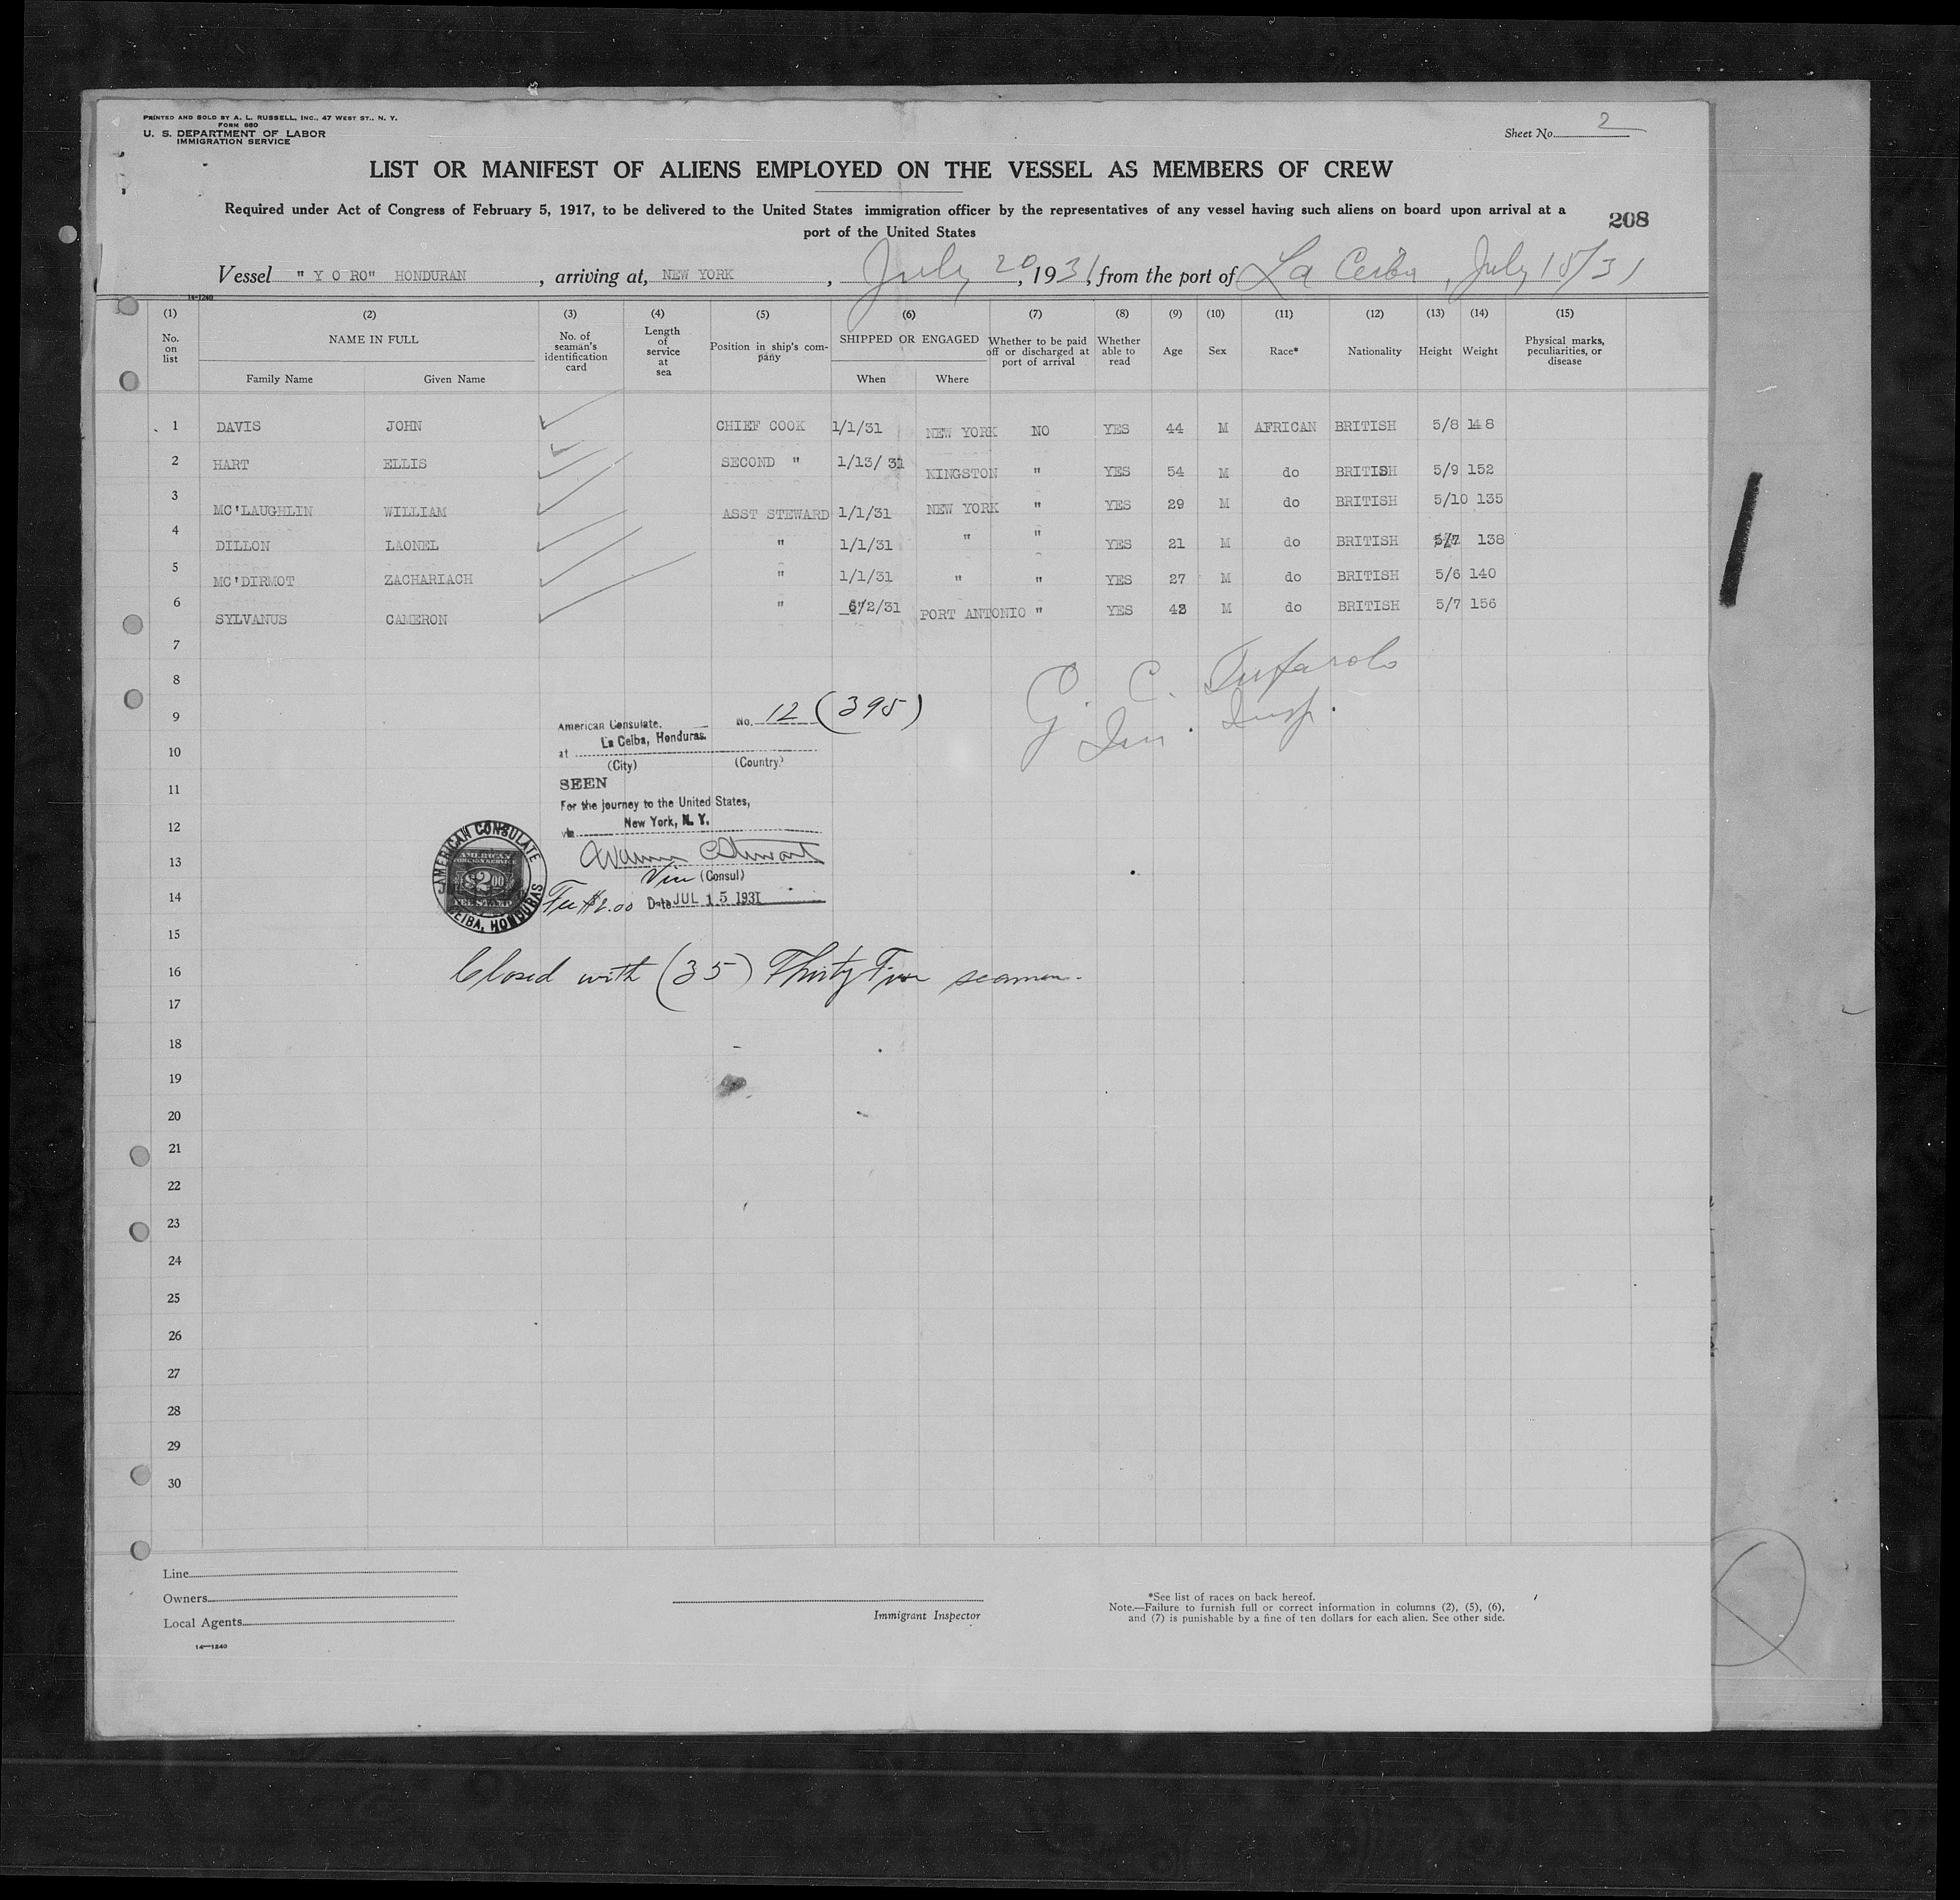 PRINTED AND SOLD BY A. L. RUSSELL, INC., 47 WEST ST., N. Y.
FORM 680
U. S. DEPARTMENT OF LABOR
IMMIGRATION SERVICE
Sheet No. 2
LIST OR MANIFEST OF ALIENS EMPLOYED ON THE VESSEL AS MEMBERS OF CREW
Required under Act of Congress of February 5, 1917, to be delivered to the United States immigration officer by the representatives of any vessel having such aliens on board upon arrival at a
port of the United States
208
Vessel " Y O RO" HONDURAN, arriving at, NEW YORK, July 20, 1931, from the port of La Ceiba, July 15/31
14-1240
(1) (2) (3) (4) (5) (6) (7) (8) (9) (10) (11) (12) (13) (14) (15)
No. on list
NAME IN FULL
Family Name Given Name
No. of seaman's identification card
Length of service at sea
Position in ship's company
SHIPPED OR ENGAGED
When Where
Whether to be paid off or discharged at port of arrival
Whether able to read
Age
Sex
Race*
Nationality
Height
Weight
Physical marks, peculiarities, or disease
1 DAVIS JOHN CHIEF COOK 1/1/31 NEW YORK NO YES 44 M AFRICAN BRITISH 5/8 148
2 HART ELLIS SECOND " 1/13/31 KINGSTON " YES 54 M do BRITISH 5/9 152
3 MC'LAUGHLIN WILLIAM ASST STEWARD 1/1/31 NEW YORK " YES 29 M do BRITISH 5/10 135
4 DILLON LAONEL " 1/1/31 " " YES 21 M do BRITISH 5/7 138
5 MC'DIRMOT ZACHARIACH " 1/1/31 " " YES 27 M do BRITISH 5/6 140
6 SYLVANUS CAMERON " 6/2/31 PORT ANTONIO " YES 43 M do BRITISH 5/7 156
7
8
9
10
11
12
13
14
15
16
17
18
19
20
21
22
23
24
25
26
27
28
29
30
G. C.
Im. Insp.
American Consulate. No. 12 (395)
at La Ceiba, Honduras.
(City) (Country)
SEEN
For the journey to the United States,
via New York, N. Y.
Vice (Consul)
Fee $2.00 Date JUL 15 1931
AMERICAN CONSULATE
AMERICAN
FOREIGN SERVICE
$2.00
FEE STAMP
CEIBA, HONDURAS
Closed with (35) Thirty Five seamen.
Line
Owners
Local Agents
14-1240
Immigrant Inspector
*See list of races on back hereof.
Note.—Failure to furnish full or correct information in columns (2), (5), (6),
and (7) is punishable by a fine of ten dollars for each alien. See other side.